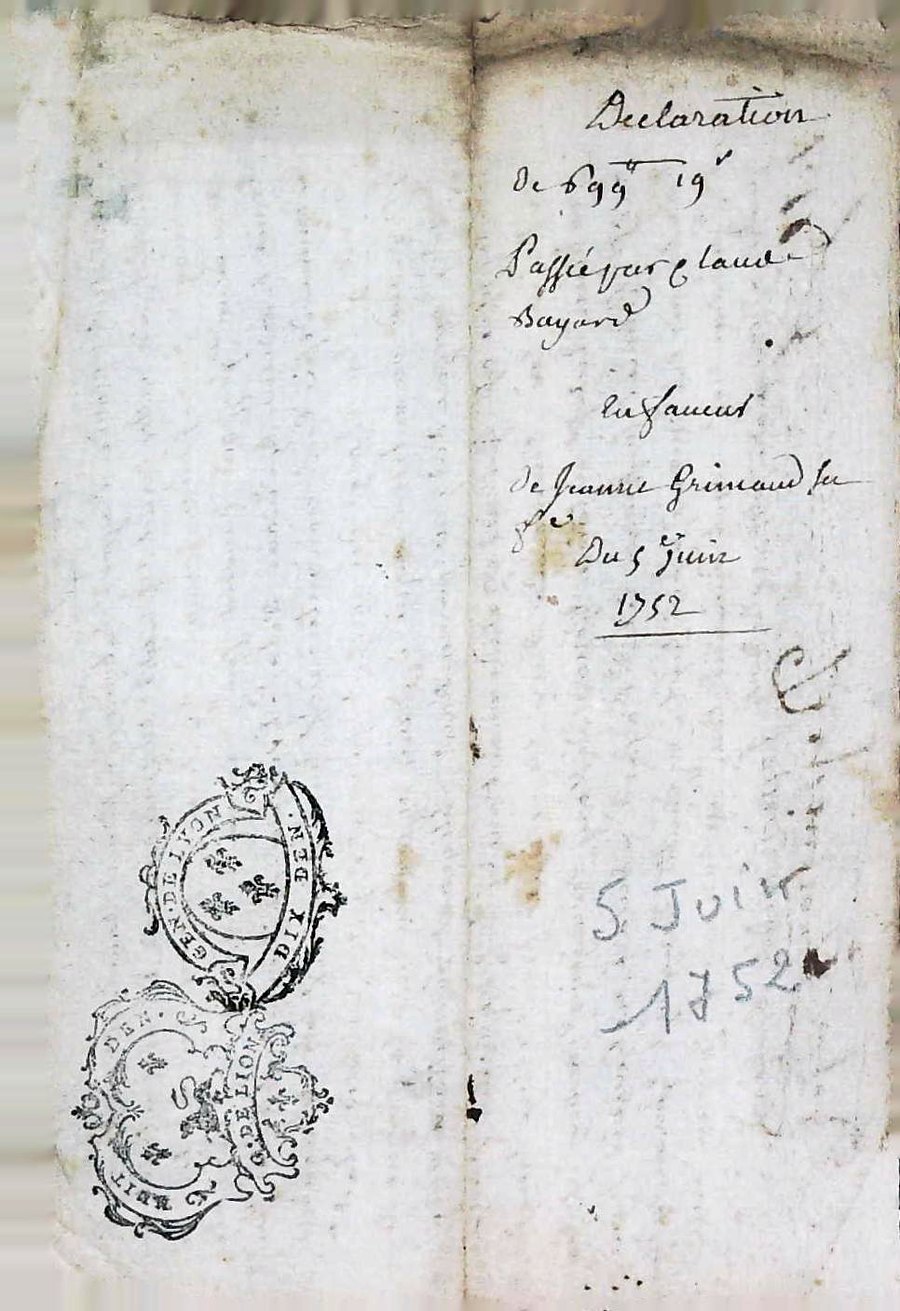 Declaration
de 699# 19s
Passé par Claude
Bayard
En faveur
de Jeanne Grimaud sa
fe
Du 5e Juin
1752
5 Juin
1752
GEN·DE LYON
DIX DEN·
HUIT DEN·
G·DE LION